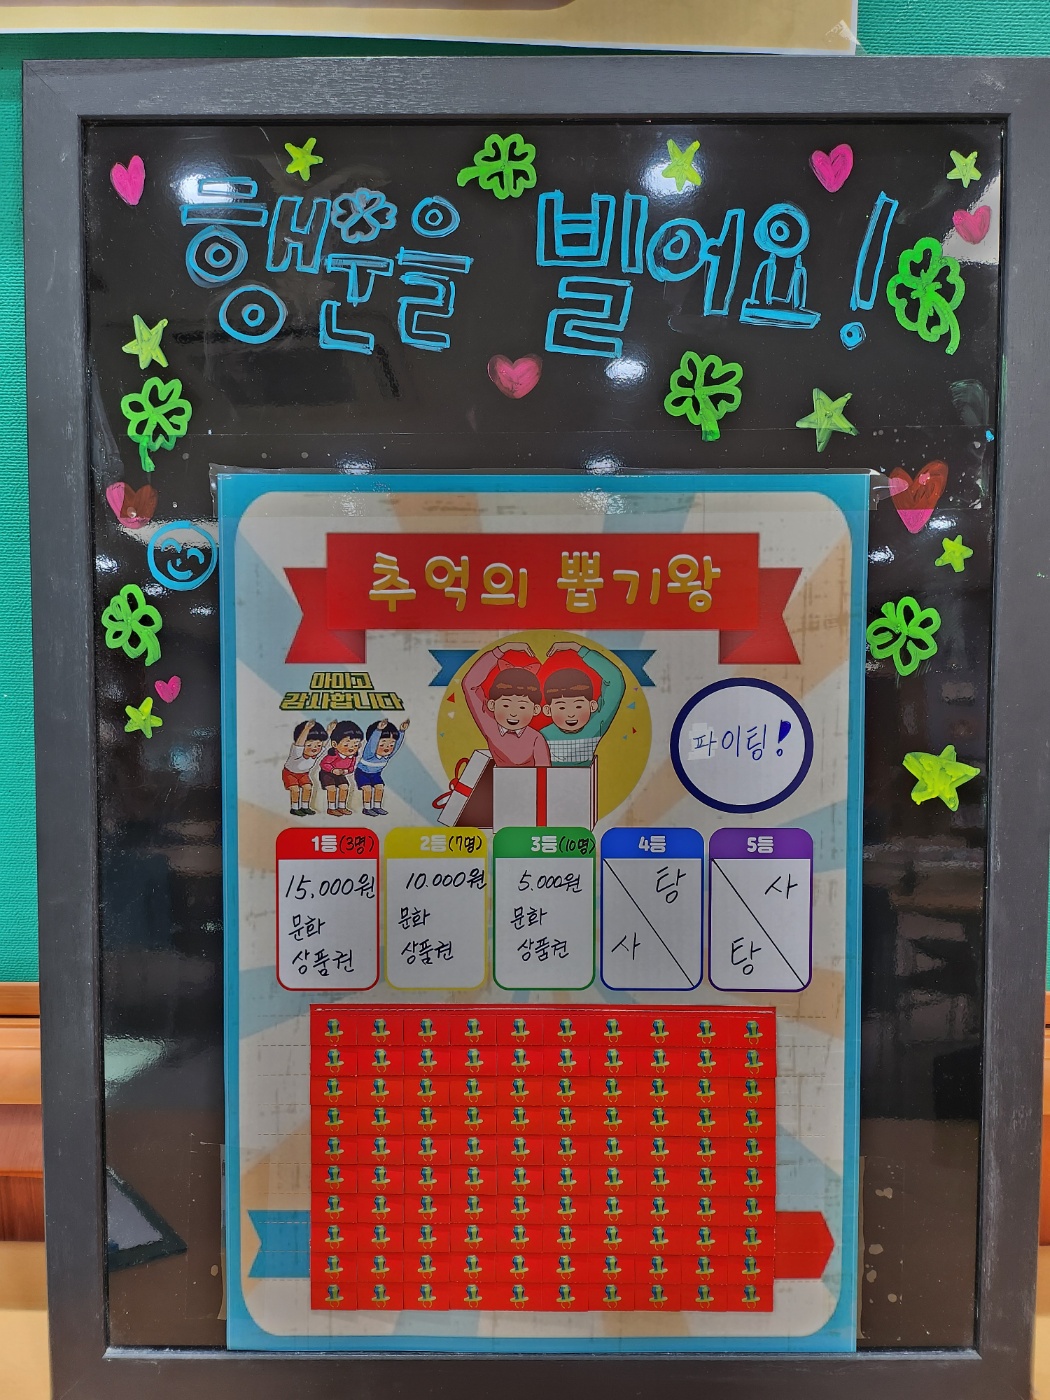 행운을 빌어요!
추억의 뽑기왕
아미고
감사합니다
파이팅!
1등(3명)
15,000원
문화
상품권
2등(7명)
10.000원
문화
상품권
3등(10명)
5.000원
문화
상품권
4등
탕
사
5등
사
탕